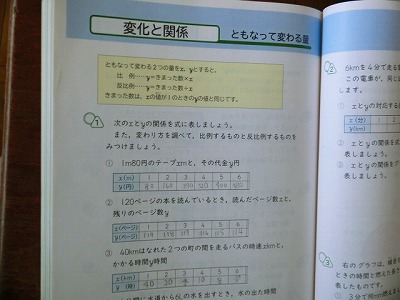 変化と関係
ともなって変わる量
ともなって変わる2つの量をx、yとすると、
比 例……y=きまった数×x
反比例……y=きまった数÷x
きまった数は、xの値が1のときのyの値と同じです。
1
次のxとyの関係を式に表しましょう。
また、変わり方を調べて、比例するものと反比例するものを
みつけましょう。
① 1m80円のテープxmと、その代金y円
x(m) 1 2 3 4 5 6
y(円) 80 160 240 320 400 480
② 120ページの本を読んでいるとき、読んだページ数xと、
残りのページ数y
x(ページ) 1 2 3 4 5 6
y(ページ) 119 118 117 116 115 114
③ 40kmはなれた2つの町の間を走るバスの時速xkmと、
かかる時間y時間
x(km) 1 2 3 4 5 6
y(時間) 40 20
水道から6Lの水を出すとき、水の出た時間
2
6kmを4分で走る
この電車が、同じ
します。
① xとyの対応する
x(分)
y(km)
② xとyの関係を
表しましょう。
③ xとyの関係を
表しましょう。
3
右のグラフは、
ときの時間と燃えた
表したものです。